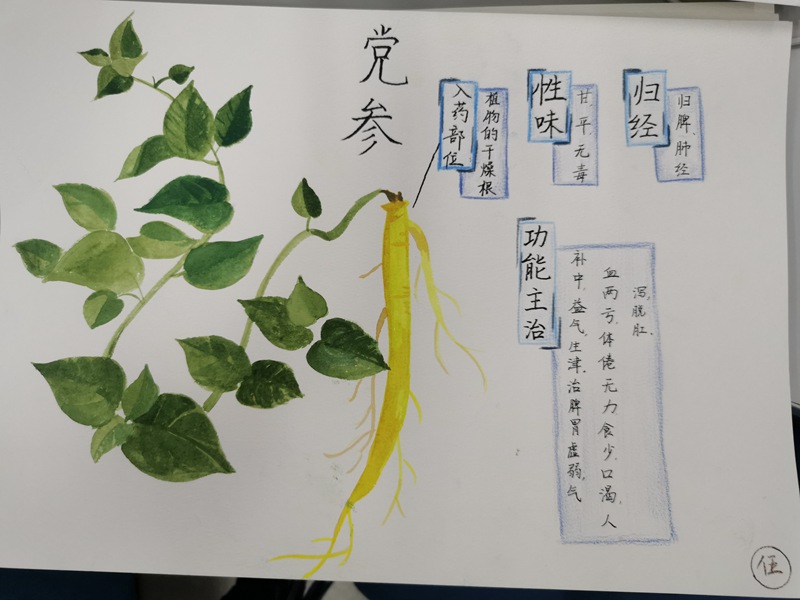 党参
入药部位
植物的干燥根
性味
甘,平,无毒
归经
归脾,肺经
功能主治
补中,益气,生津,治脾胃虚弱,气
血两亏,体倦无力,食少,口渴,久
泻,脱肛.